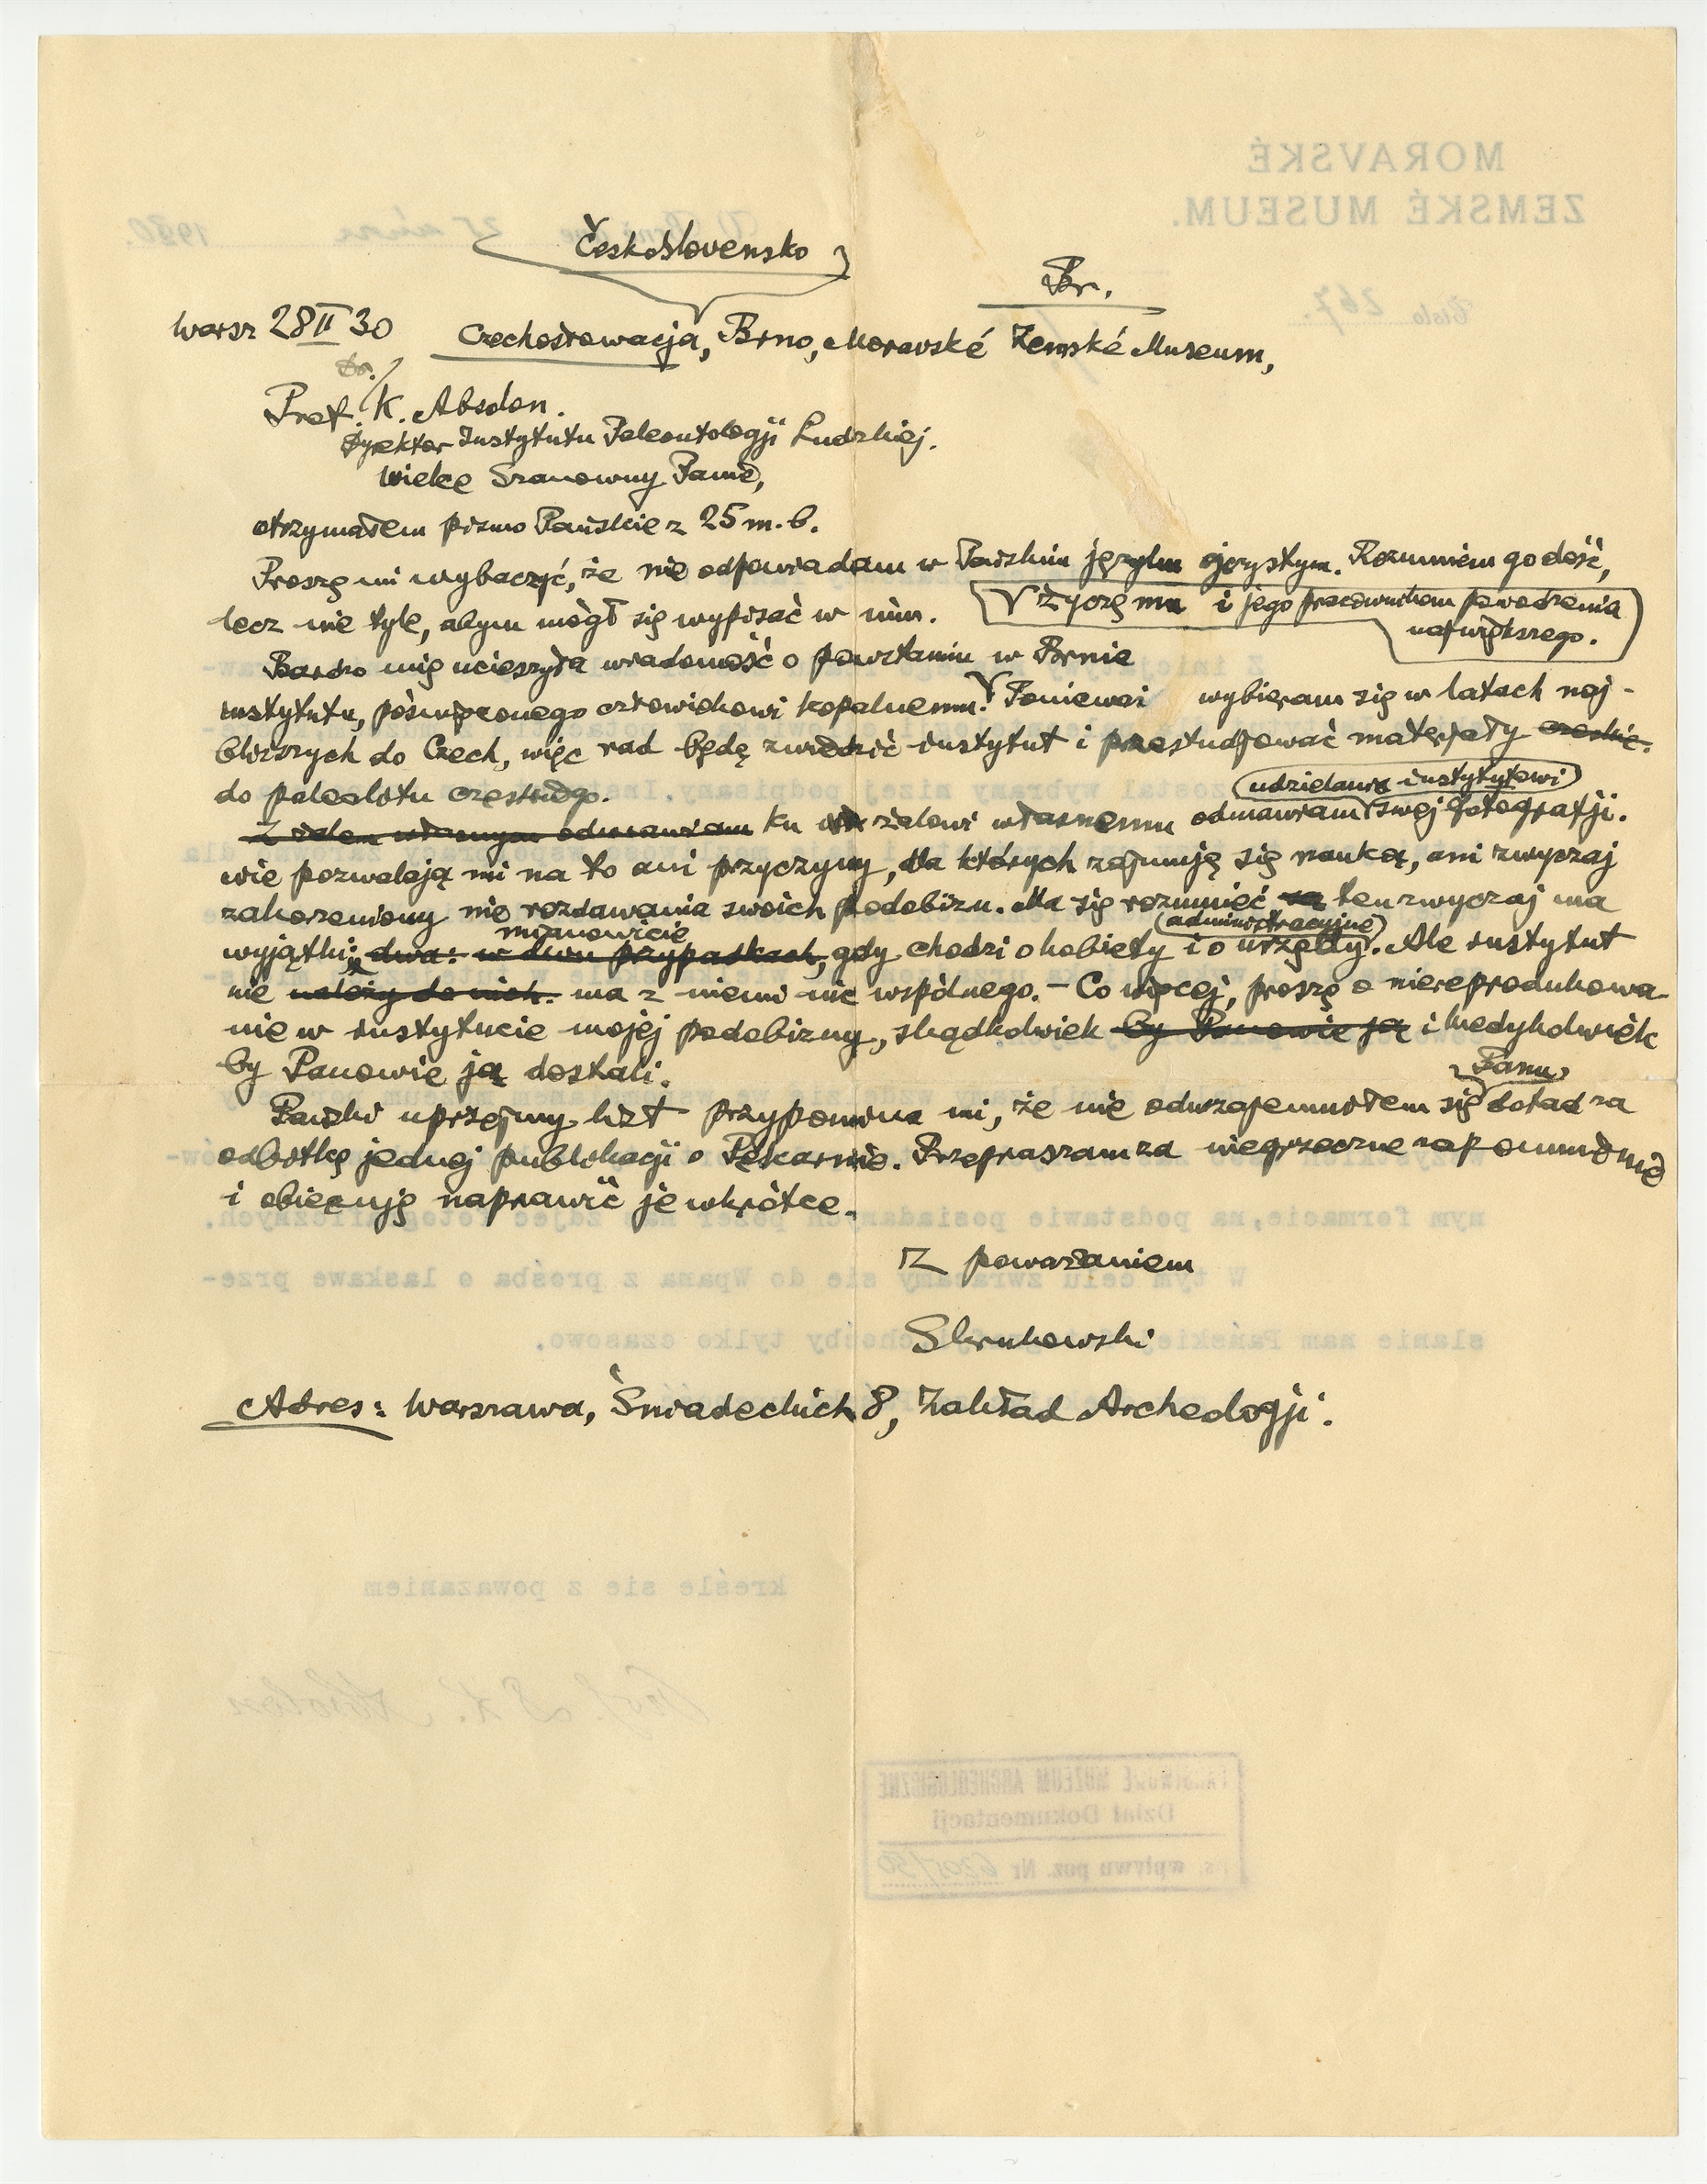 Československo
Br.
Warsz 28 II 30 Czechosłowacja, Brno, Moravské Zemské Museum,
Dr.
Prof. K. Absolon.
Dyrektor Instytutu Paleontologji Ludzkiej.
Wielce Szanowny Panie,
otrzymałem pismo Pańskie z 25 m. b.
Proszę mi wybaczyć, że nie odpowiadam w Pańskim języku ojczystym. Rozumiem go dość,
lecz nie tyle, abym mógł się wypisać w nim. życzę mu i jego pracownikom powodzenia
największego.
Bardzo mię ucieszyła wiadomość o powstaniu w Brnie
instytutu, poświęconego człowiekowi kopalnemu. Ponieważ wybieram się w latach naj-
bliższych do Czech, więc rad będę zwiedzić instytut i przestudjować materjały czeskie.
do paleolitu czeskiego.
udzielania instytutowi
Z żalem własnym odmawiam ku żalowi własnemu odmawiam swej fotografji.
nie pozwalają mi na to ani przyczyny, dla których zajmuję się nauką, ani zwyczaj
zakorzeniony nie rozdawania swoich podobizn. Ma się rozumieć ten zwyczaj ma
mianowicie (administracyjne)
wyjątki; dwa: w dwu przypadkach, gdy chodzi o kobiety i o urzędy. Ale instytut
nie należy do nich. ma z niemi nic wspólnego. – Co więcej, proszę o niereprodukowa-
nie w instytucie mojej podobizny, skądkolwiek by Panowie ją i kiedykolwiek
by Panowie ją dostali.
Panu
Pański uprzejmy list przypomina mi, że nie odwzajemniłem się dotąd za
odbitkę jednej publikacji o Pekarnie. Przepraszam za niegrzeczne zapomnienie
i obiecuję naprawić je wkrótce.
Z poważaniem
SKrukowski
Adres: Warszawa, Śniadeckich 8, Zakład Archeologji.